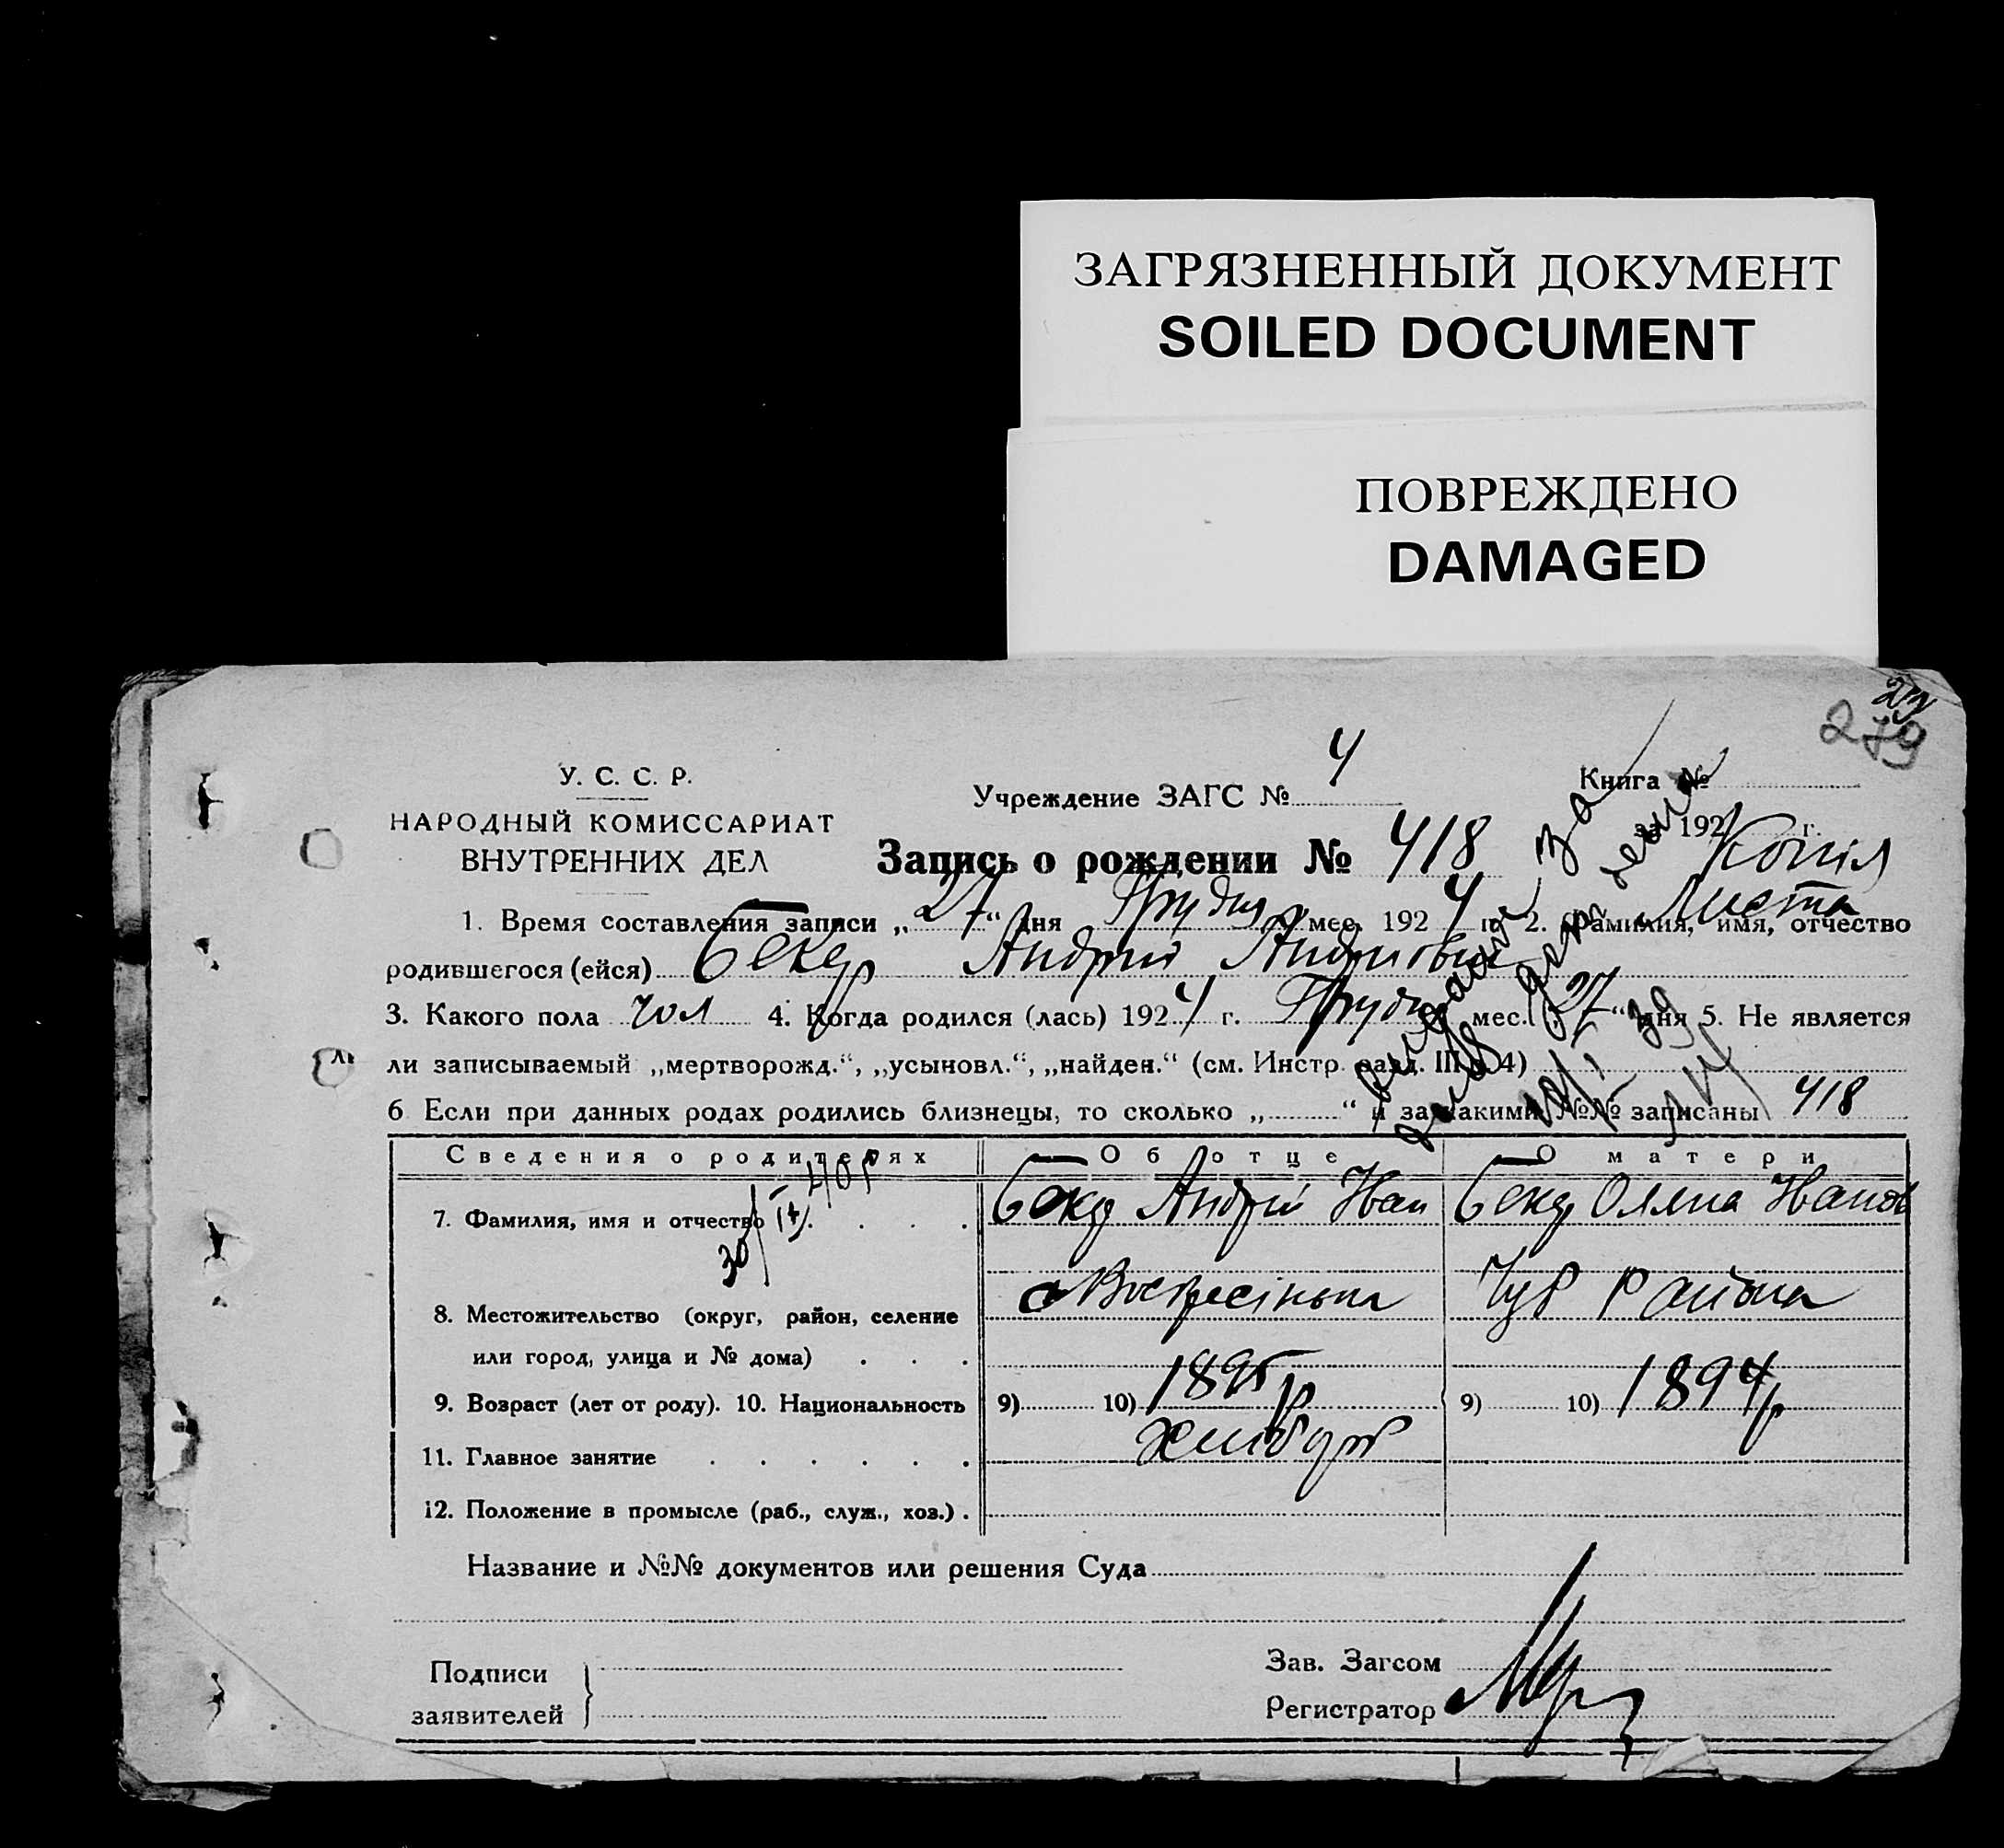 ЗАГРЯЗНЕННЫЙ ДОКУМЕНТ
SOILED DOCUMENT
ПОВРЕЖДЕНО
DAMAGED
279
У. С. С. Р.
НАРОДНЫЙ КОМИССАРИАТ
ВНУТРЕННИХ ДЕЛ
Учреждение ЗАГС № 4
Книга №
за 192 г.
Запись о рождении № 418
Копія
1. Время составления записи „27“ дня Грудня мес. 1924 г. 2. Фамилия, имя, отчество
родившегося (ейся) Бекар Андрій Андриович
3. Какого пола чол 4. Когда родился (лась) 1924 г. Грудня мес. „27“ дня 5. Не является
ли записываемый „мертворожд.“, „усыновл.“, „найден.“ (см. Инстр. разд. III п. 4)
6 Если при данных родах родились близнецы, то сколько „ “ и за какими №№ записаны 418
Сведения о родителях Об отце О матери
7. Фамилия, имя и отчество Андрій Иван Оляна Иванов
8. Местожительство (округ, район, селение
или город, улица и № дома)
с Воскресінька Чуб Района
9. Возраст (лет от роду). 10. Национальность 9) 10) 1895 р 9) 10) 1894 р
11. Главное занятие хлибороб
12. Положение в промысле (раб., служ., хоз.)
Название и №№ документов или решения Суда
Подписи
заявителей
Зав. Загсом
Регистратор